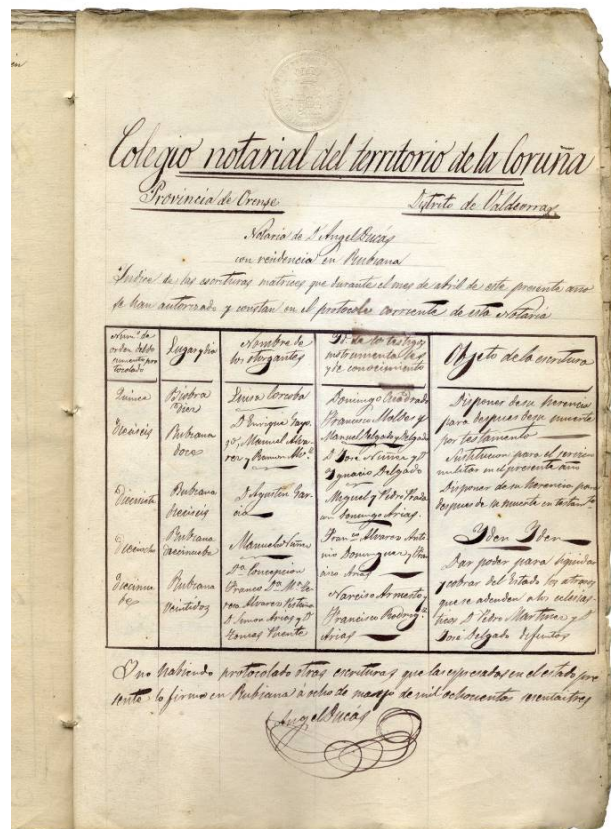 Colegio notarial del territorio de la Coruña
Provincia de Orense
Distrito de Valdeorras
Notaria de D. Angel Ducás
con residencia en Rubiana
Indice de las escrituras matrices que durante el mes de abril de este presente año
se han autorizado y constan en el protocolo corriente de esta Notaria
Núm.º de
orden del do
cumento pro
tocolado
Lugar y dia
Nombre de
los otorgantes
Id. de los testigos
instrumentales
y de conocimiento
Objeto de la escritura
Quince
Biobra
diez
Luisa
Domingo Cuadrado
Francisco
Manuel Delgado y Delgado
Disponer de su herencia
para despues de su muerte
por testamento
Dieciseis
Rubiana
doce
D. Enrique
Manuel Alva
rez y Ramon
D. José Nuñez y D.
Ignacio Delgado
Sustitucion para el servicio
militar en el presente año
Diecisiete
Rubiana
dieciseis
D. Agustin Gar
cia
Miguel y Pedro Prada
Domingo Arias
Disponer de su herencia para
despues de su muerte en testam.to
Dieciocho
Rubiana
diecinueve
Manuela Nuñez
Fran.co Alvarez Anto
nio Dominguez y Fran
cisco Arias
Yden Yden
Diecinue
be
Rubiana
veintidos
D.a Concepcion
Franco D.a M.a Te
resa Alvarez
D. Simon Arias y D.
Tomas Puente
Narciso Armesto y
Francisco Rodrig.z
Arias
Dar poder para liquidar
y cobrar del Estado los atrasos
que se adeuden a los eclesias
ticos D. Pedro Martinez y D.
José Delgado difuntos
Y no habiendo protocolado otras escrituras que las espresadas en el estado pre
sente lo firmo en Rubiana á ocho de mayo de mil ochocientos sesentaitres
Angel Ducás